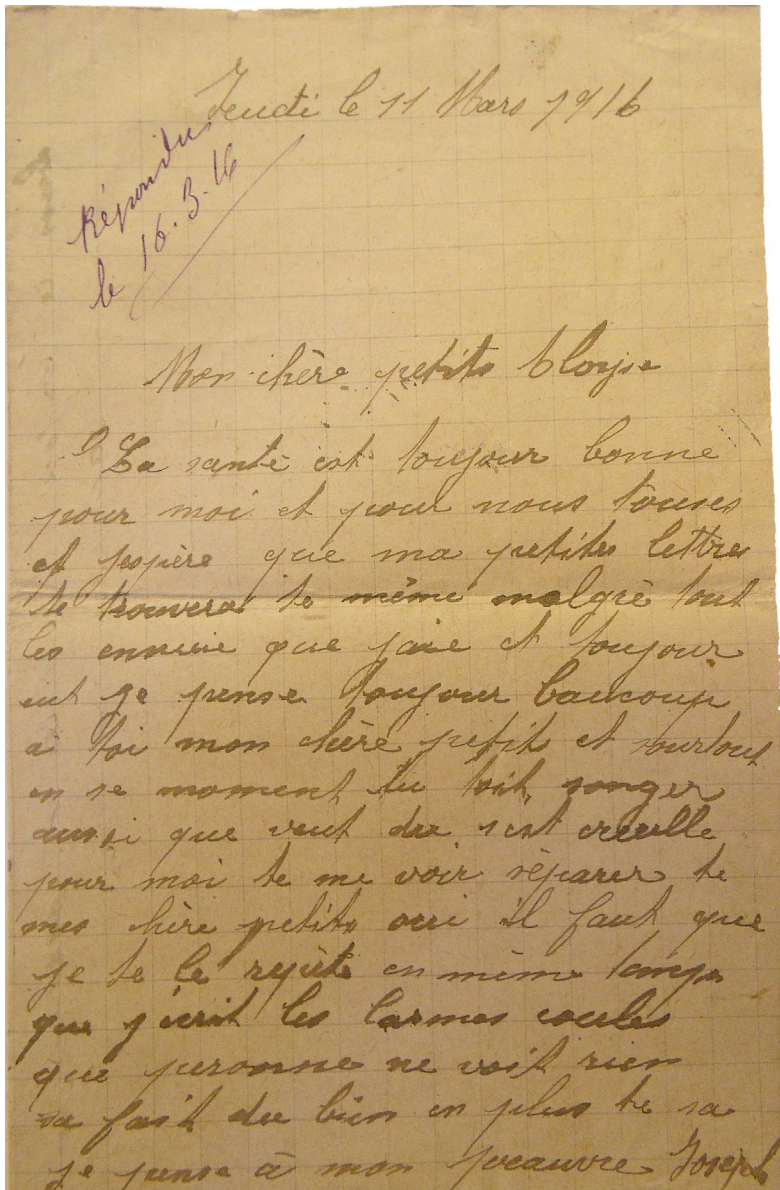 Jeudi le 11 Mars 1916
Répondu
le 16.3.16
Mon chère petits Eloyse
La santé est toujour bonne
pour moi et pour nous touses
et jespère que ma petites lettres
te trouvera te même malgrè tout
les ennuie que jaie et toujour
je pense toujour baucoup
a toi mon chère petits et surtout
en se moment tu toit songer
aussi que veut du s'est creulle
pour moi te me voir séparer te
mes chère petits oui il faut que
je te le repète en même temps
que j'ecrit les larmes coules
que personne ne voit rien
sa fait du bien en plus te sa
je pense à mon peauvre Joseph